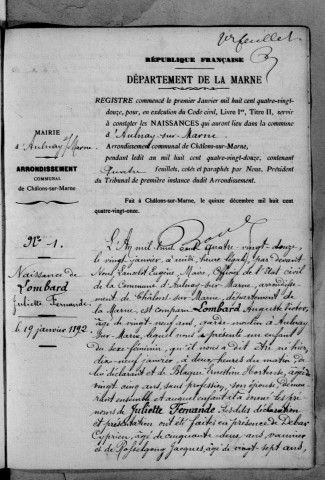 1er feuillet
RÉPUBLIQUE FRANÇAISE
DÉPARTEMENT DE LA MARNE
REGISTRE commencé le premier Janvier mil huit cent quatre-vingt-
douze, pour, en exécution du Code civil, Livre Ier, Titre II, servir
à constater les NAISSANCES qui auront lieu dans la commune
d'Aulnay-sur-Marne
Arrondissement communal de Châlons-sur-Marne,
pendant ledit an mil huit cent quatre-vingt-douze, contenant
quatre feuillets, cotés et paraphés par Nous, Président
du Tribunal de première instance dudit Arrondissement.
Fait à Châlons-sur-Marne, le quinze décembre mil huit cent
quatre-vingt-onze.
MAIRIE
d'Aulnay s/ Marne
ARRONDISSEMENT
COMMUNAL
de Châlons-sur-Marne
No 1.
Naissance de
Lombard
Juliette Fernande
le 19 janvier 1892
L'An mil huit cent quatre-vingt-douze,
le vingt janvier à midi, heure légale, par devant
Nous, Eugène, Maire, Officier de l'état civil
de la Commune d'Aulnay-sur-Marne, arrondisse-
ment de Châlons-sur-Marne, département de
la Marne, est comparu Lombard Auguste Victor,
âgé de vingt-neuf ans, garde-moulin à Aulnay-
sur-Marne, lequel nous a présenté un enfant
du sexe féminin, qu'il nous a dit être né hier
dix-neuf janvier, à deux heures du matin de
lui déclarant et de Hortense, âgée de
vingt-cinq ans, sans profession, son épouse, demeu-
rant ensemble et auquel enfant il a donné les pré-
noms de Juliette Fernande. Lesdites déclaration
et présentation ont été faites en présence de
Cyprien, âgé de cinquante-deux ans, vannier
et de Jacques, âgé de vingt-sept ans,